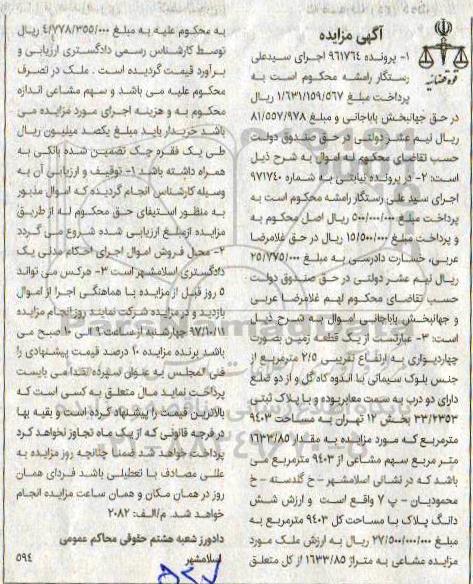 آگهی مزایده
قوه قضائیه
۱- پرونده ۹۶۱۷۶۴ اجرای سیدعلی
رستگار رامشه محکوم است به
پرداخت مبلغ ۱/۶۳۱/۱۵۹/۵۶۷ ریال
در حق جهانبخش باباجانی و مبلغ ۸۱/۵۵۷/۹۷۸
ریال نیم عشر دولتی در حق صندوق دولت
حسب تقاضای محکوم له اموال به شرح ذیل
است: ۲- در پرونده نیابتی به شماره ۹۷۱۷۴۰
اجرای سید علی رستگار رامشه محکوم است به
پرداخت مبلغ ۵۰۰/۰۰۰/۰۰۰ ریال اصل محکوم به
و پرداخت مبلغ ۱۵/۵۰۰/۰۰۰ ریال در حق غلامرضا
عربی، خسارت دادرسی به مبلغ ۲۵/۷۷۵/۰۰۰
ریال نیم عشر دولتی در حق صندوق دولت
حسب تقاضای محکوم لهم غلامرضا عربی
و جهانبخش باباجانی اموال به شرح ذیل
است: ۳- عبارتست از یک قطعه زمین بصورت
چهاردیواری به ارتفاع تقریبی ۲/۵ مترمربع از
جنس بلوک سیمانی با اندوه کاه گل و از دو ضلع
دارای دو درب به سمت معابر بوده و با پلاک ثبتی
۳۳/۲۳۵۳ بخش ۱۲ تهران به مساحت ۹۴۰۳
مترمربع که مورد مزایده به مقدار ۱۶۳۳/۸۵
متر مربع سهم مشاعی از ۹۴۰۳ مترمربع می
باشد که در نشانی اسلامشهر - خ گلدسته - خ
محمودیان - پ ۷ واقع است و ارزش شش
دانگ پلاک با مساحت کل ۹۴۰۳ مترمربع به
مبلغ ۲۷/۵۰۰/۰۰۰/۰۰۰ ریال به ارزش ملک مورد
مزایده مشاعی به متراژ ۱۶۳۳/۸۵ از کل متعلق
به محکوم علیه به مبلغ ۴/۷۷۸/۳۵۵/۰۰۰ ریال
توسط کارشناس رسمی دادگستری ارزیابی و
برآورد قیمت گردیده است. ملک در تصرف
محکوم علیه می باشد و سهم مشاعی اندازه
محکوم به و هزینه اجرای مورد مزایده می
باشد خریدار باید مبلغ یکصد میلیون ریال
طی یک فقره چک تضمین شده بانکی به
همراه داشته باشد ۱- توقیف و ارزیابی آن به
وسیله کارشناس انجام گردیده که اموال مذبور
به منظور استیفای حق محکوم له از طریق
مزایده ازمبلغ ارزیابی شده شروع می گردد
۲- محل فروش اموال اجرای احکام مدنی یک
دادگستری اسلامشهر است ۳- هرکس می تواند
۵ روز قبل از مزایده با هماهنگی اجرا از اموال
بازدید و در مزایده شرکت نمایند روز انجام مزایده
۹۷/۱۰/۱۱ چهارشنبه از ساعت ۹ الی ۱۰ صبح می
باشد برنده مزایده ۱۰ درصد قیمت پیشنهادی را
فی المجلس به عنوان سپرده نقدا می بایست
پرداخت نماید مال متعلق به کسی است که
بالاترین قیمت را پیشنهاد کرده است و بقیه بها
در فرجه قانونی که از یک ماه تجاوز نخواهد کرد
پرداخت خواهد شد ضمنا چنانچه روز مزایده به
عللی مصادف با تعطیلی باشد فردای همان
روز در همان مکان و همان ساعت مزایده انجام
خواهد شد. م/الف: ۲۰۸۲
دادورز شعبه هشتم حقوقی محاکم عمومی
اسلامشهر
۵۹۴